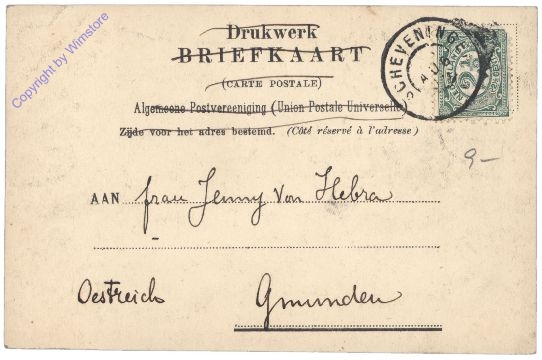 Drukwerk
BRIEFKAART
(CARTE POSTALE)
Algemeene Postvereeniging (Union Postale Universelle)
Zijde voor het adres bestemd. (Côté réservé à l'adresse)
SCHEVENING
9-
AAN frau Jenny von Hebra
Oestreich Gmunden
Copyright by Wimstore